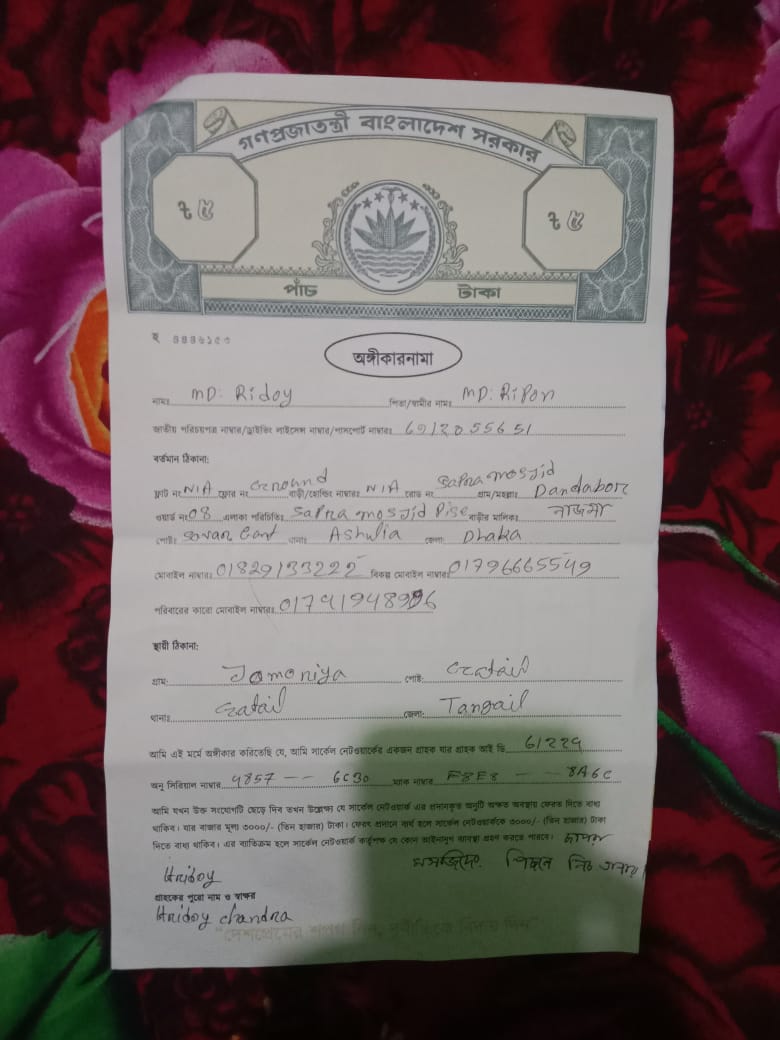 গণপ্রজাতন্ত্রী বাংলাদেশ সরকার
৳ ৫ ৳ ৫
পাঁচ টাকা
অঙ্গীকারনামা
নামঃ MD: Ridoy পিতা/স্বামীর নামঃ MD: Ripon
জাতীয় পরিচয়পত্র নাম্বার/ড্রাইভিং লাইসেন্স নাম্বার/পাসপোর্ট নাম্বারঃ 6912055651
বর্তমান ঠিকানা:
ফ্লাট নং N/A ফ্লোর নং Ground বাড়ী/হোল্ডিং নাম্বারঃ N/A রোড নং Sapra mosjid গ্রাম/মহল্লাঃ Dandabor
ওয়ার্ড নং 08 এলাকা পরিচিতিঃ Sapra mosjid Pise বাড়ীর মালিকঃ নাজমা
পোষ্টঃ Savar Cant থানাঃ Ashulia জেলা: Dhaka
মোবাইল নাম্বারঃ 01829133222 বিকল্প মোবাইল নাম্বারঃ 01796665549
পরিবারের কারো মোবাইল নাম্বারঃ
স্থায়ী ঠিকানা:
গ্রাম: Jamoriya পোষ্ট: Gatail
থানাঃ Gatail জেলা: Tangail
আমি এই মর্মে অঙ্গীকার করিতেছি যে, আমি সার্কেল নেটওয়ার্কের একজন গ্রাহক যার গ্রাহক আই ডি 61229
অনু সিরিয়াল নাম্বার 4857 -- 6C30 ম্যাক নাম্বার F8E8 -- 8A6C
আমি যখন উক্ত সংযোগটি ছেড়ে দিব তখন উল্লেক্ষ্য যে সার্কেল নেটওয়ার্ক এর প্রদানকৃত অনুটি অক্ষত অবস্থায় ফেরত দিতে বাধ্য
থাকিব। যার বাজার মূল্য ৩০০০/- (তিন হাজার) টাকা। ফেরৎ প্রদানে ব্যর্থ হলে সার্কেল নেটওয়ার্ককে ৩০০০/- (তিন হাজার) টাকা
দিতে বাধ্য থাকিব। এর ব্যতিক্রম হলে সার্কেল নেটওয়ার্ক কর্তৃপক্ষ যে কোন আইনানুগ ব্যবস্থা গ্রহন করতে পারবে।
মসজিদের পিছনে নিচ তলায়
Hridoy
গ্রাহকের পুরো নাম ও স্বাক্ষর
Hridoy chandra